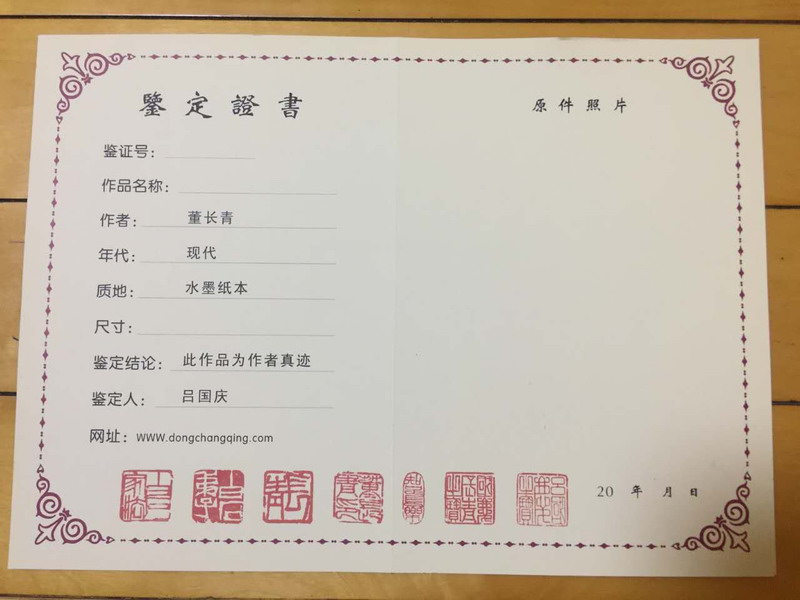 鑒定證書
鉴证号：
作品名称：
作者： 董长青
年代： 现代
质地： 水墨纸本
尺寸：
鉴定结论： 此作品为作者真迹
鉴定人： 吕国庆
网址： www.dongchangqing.com
原件照片
20 年 月 日